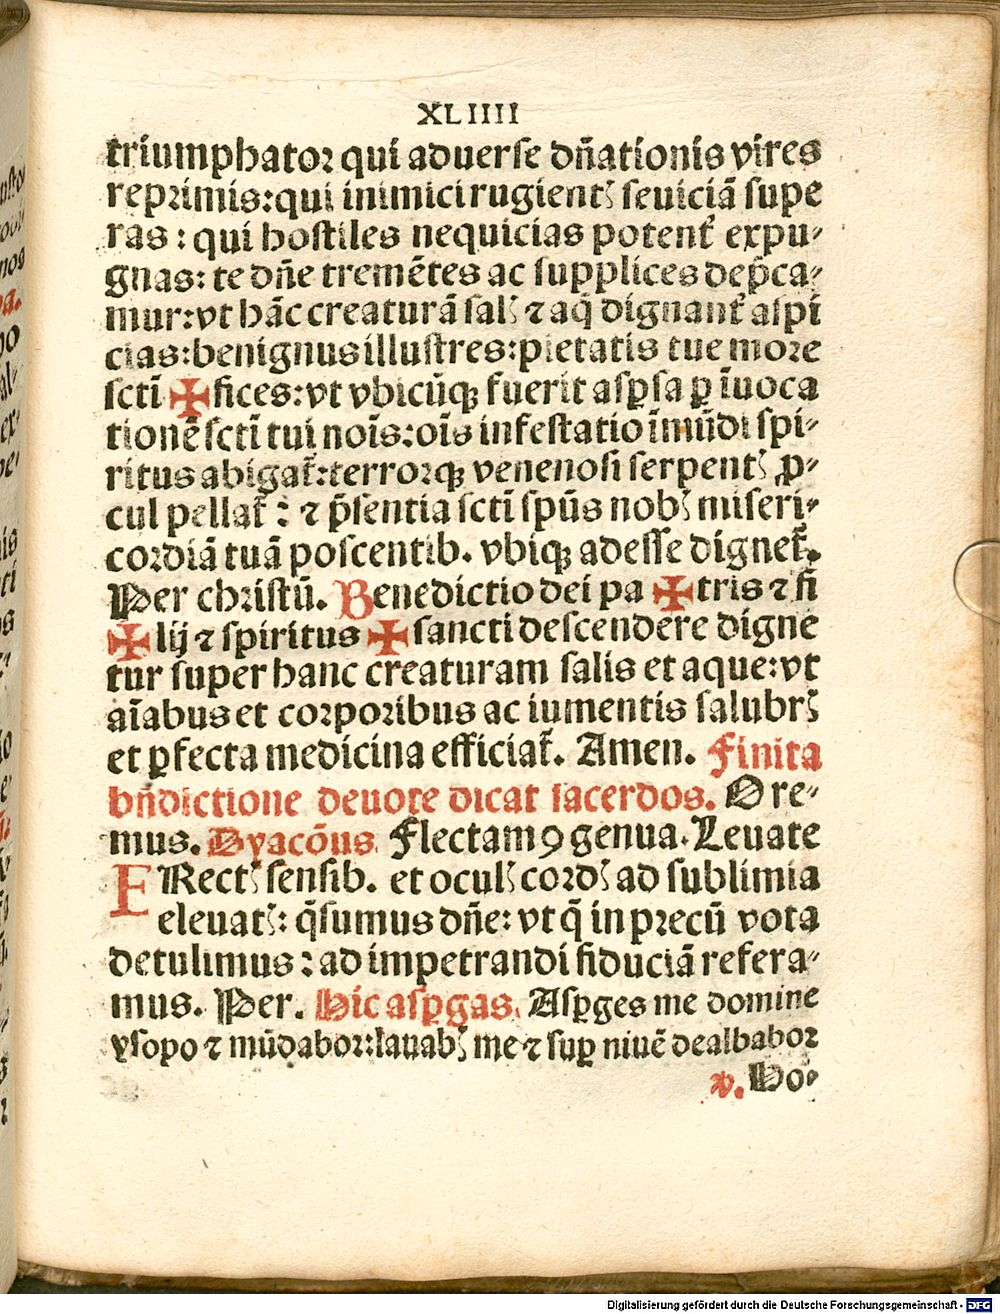 XLIIII
triumphator qui aduerse dñationis vires
reprimis: qui inimici rugientꝭ seuiciã supe
ras: qui hostiles nequicias potent᷑ expu-
gnas: te dñe tremẽtes ac supplices dep̃ca-
mur: vt hãc creaturã salꝭ ⁊ aq̃ dignant᷑ aspi
cias: benignus illustres: pietatis tue more
sctĩ ✠ fices: vt vbicũqꝫ fuerit aspꝑsa ꝑ ĩuoca
tionẽ sctĩ tui noĩs: oĩs infestatio ĩmũdi spi-
ritus abigat᷑: terrorqꝫ venenosi serpentꝭ ꝓ-
cul pellat᷑: ⁊ p̃sentia sctĩ spũs nobꝭ miseri-
cordiã tuã poscentib. vbiqꝫ adesse dignet᷑.
Per christũ. Benedictio dei pa ✠ tris ⁊ fi
✠ lij ⁊ spiritus ✠ sancti descendere digne
tur super hanc creaturam salis et aque: vt
aĩabus et corporibus ac iumentis salubrꝭ
et ꝑfecta medicina efficiat᷑. Amen. Finita
bñdictione deuote dicat sacerdos. Ore-
mus. Dyacõus. Flectamꝯ genua. Leuate
ERectꝭ sensib. et oculꝭ cordꝭ ad sublimia
eleuatꝭ: q̃sumus dñe: vt q̃ in precũ vota
detulimus: ad impetrandi fiduciã refera-
mus. Per. Hic asꝑgas. Asꝑges me domine
ysopo ⁊ mũdabor: lauabꝭ me ⁊ suꝑ niuẽ dealbabor
v. Ho-
Digitalisierung gefördert durch die Deutsche Forschungsgemeinschaft - DFG